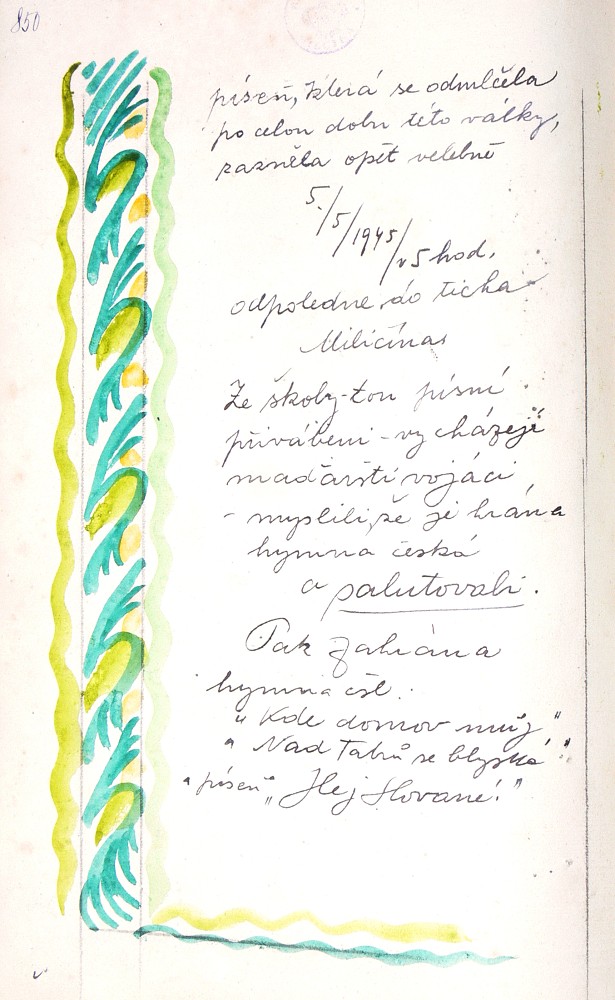 850
píseň, která se odmlčela
po celou dobu této války,
zazněla opět velebně
5./5/1945/v 5 hod.
odpoledne do ticha
Miličína.
Ze školy - tou písní
přivábeni - vycházejí
maďarští vojáci
- myslili, že je hrána
hymna česká
a salutovali.
Pak zahrána
hymna čsl.
"Kde domov můj"
"Nad Tatrů se blýská"
"píseň "Hej Slované!"